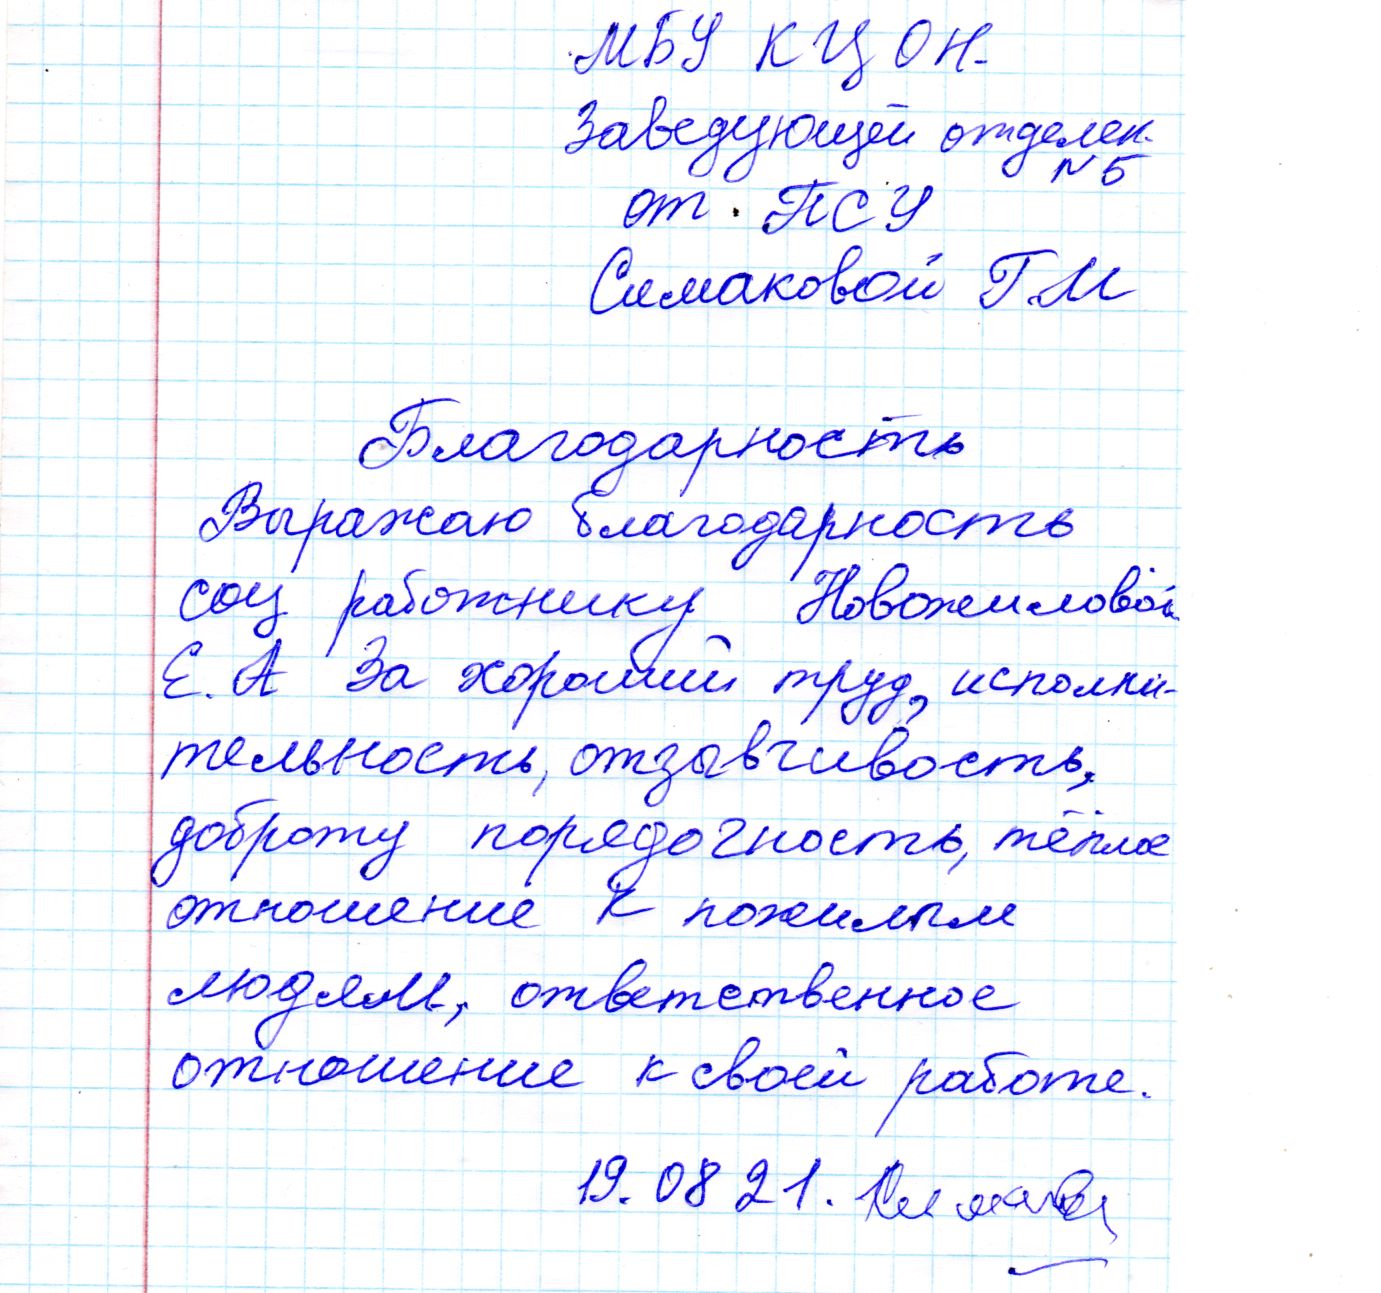 МБУ КЦОН.
Заведующей отделен.
N 5
от ПСУ
Симаковой Г.М
Благодарность
Выражаю благодарность
соц работнику Новожиловой
Е. А За хороший труд, исполни-
тельность, отзывчивость,
доброту порядочность, тёплое
отношение к пожилым
людям, ответственное
отношение к своей работе.
19.08 21.